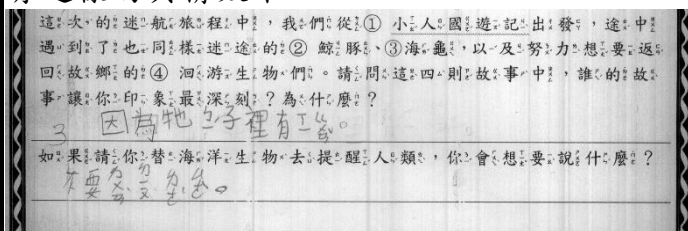 這次的迷航旅程中，我們從①小人國遊記出發，途中
遇到了也同樣迷途的②鯨豚、③海龜，以及努力想要返
回故鄉的④洄游生物們。請問這四則故事中，誰的故
事讓你印象最深刻？為什麼？
3 因為牠 子裡有
如果請你替海洋生物去提醒人類，你會想要說什麼？
不要